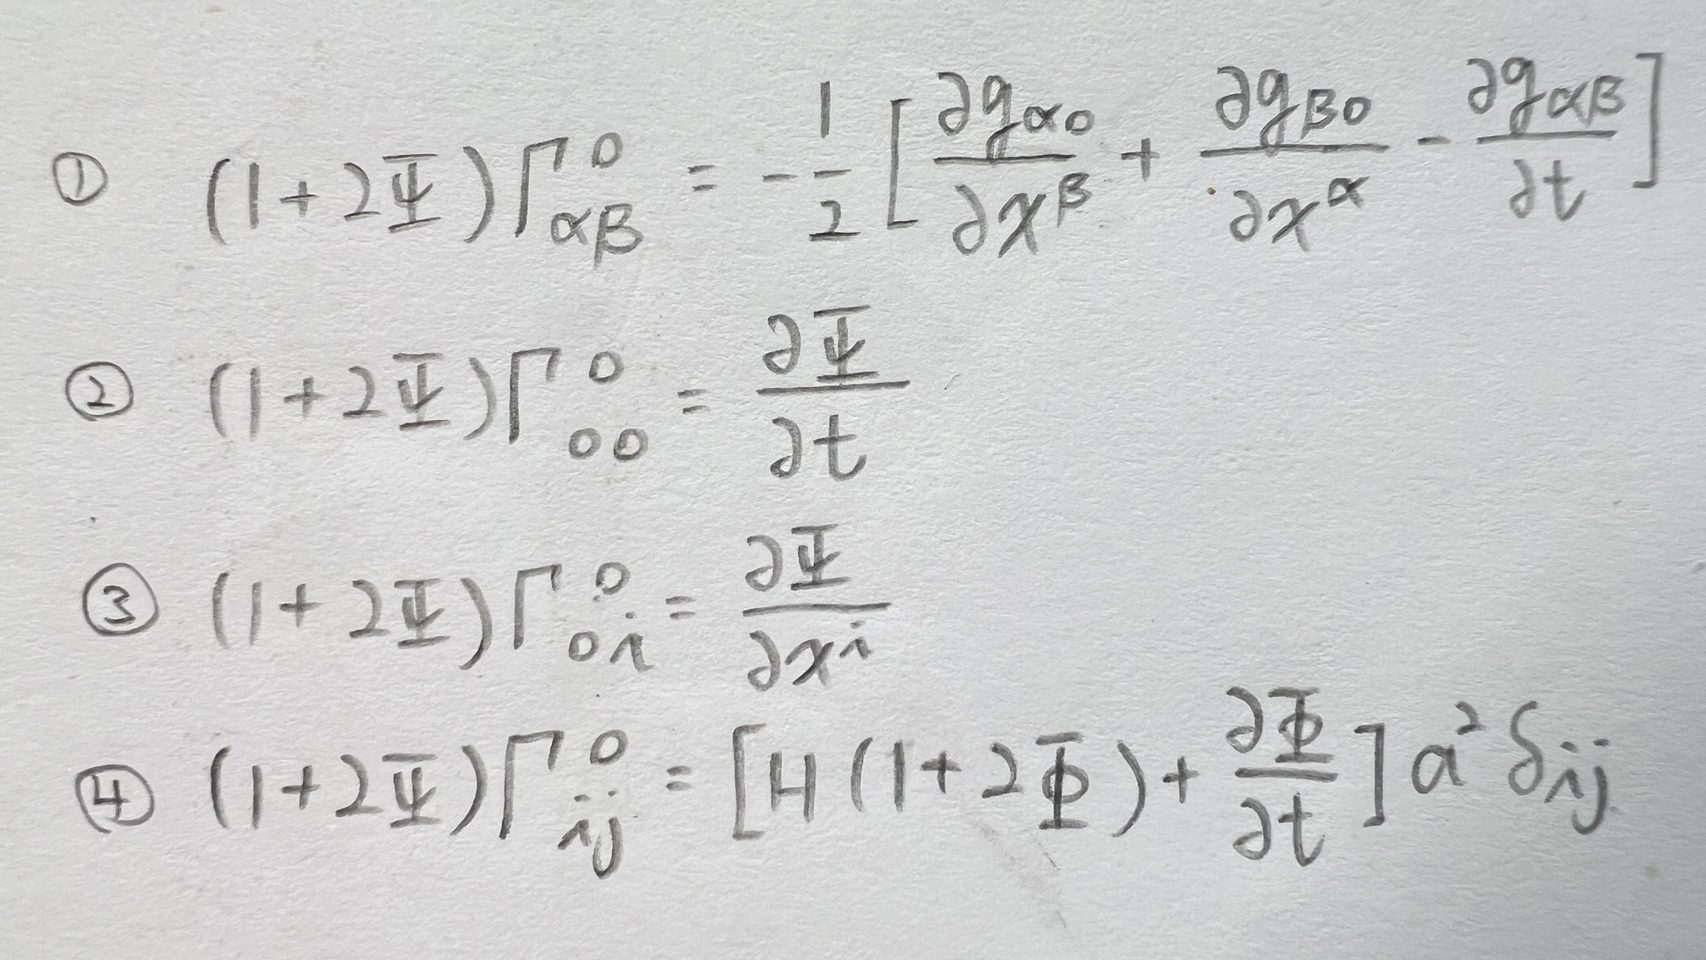 ① (1+2Ψ)Γ⁰_{αβ} = -\frac{1}{2}[\frac{∂g_{α0}}{∂x^β} + \frac{∂g_{β0}}{∂x^α} - \frac{∂g_{αβ}}{∂t}]
② (1+2Ψ)Γ⁰_{00} = \frac{∂Ψ}{∂t}
③ (1+2Ψ)Γ⁰_{0i} = \frac{∂Ψ}{∂x^i}
④ (1+2Ψ)Γ⁰_{ij} = [H(1+2Φ) + \frac{∂Φ}{∂t}]a²δ_{ij}